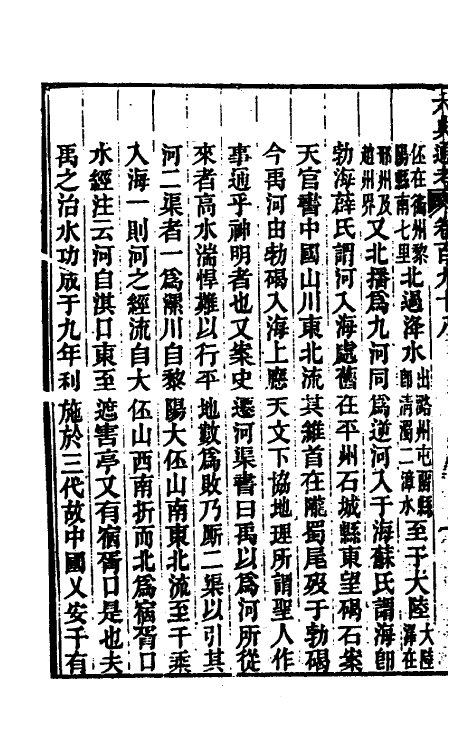 六典通考 卷百九十八
伾在衞州黎陽縣南七里北過洚水出潞州屯留縣卽淸濁二漳水至于大陸大陸澤在
邢州及趙州界又北播爲九河同爲逆河入于海蘇氏謂海卽
勃海薛氏謂河入海處舊在平州石城縣東望碣石案
天官書中國山川東北流其維首在隴蜀尾沒于勃碣
今禹河由勃碣入海上應天文下協地理所謂聖人作
事通乎神明者也又案史遷河渠書曰禹以爲河所從
來者高水湍悍難以行平地數爲敗乃厮二渠以引其
河二渠者一爲漯川自黎陽大伾山南東北流至千乘
入海一則河之經流自大伾山西南折而北爲宿胥口
水經注云河自淇口東至遮害亭又有宿胥口是也夫
禹之治水功成于九年利施於三代故中國乂安千有